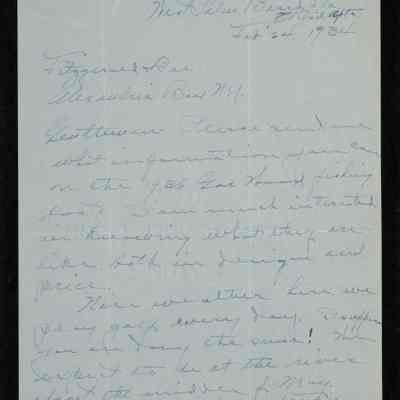 West Palm Beach Fla
Feb 24 1936
Fitzgerald & Lee
Alexandria Bay N.Y.
Gentlemen Please send me
what information you can
on the 1936 Gar Wood fishing
boat. I am much interested
in knowing what they are
like both in design and
price.
Nice weather here we
play golf every day. I suppose
you are doing the same! We
expect to be at the river
about the middle of May